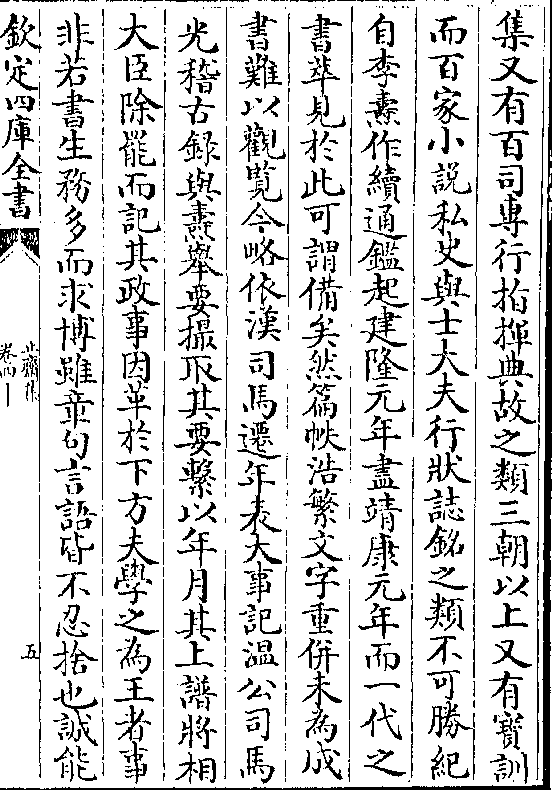 集又有百司專行指揮典故之類三朝以上又有寳訓
而百家小説私史與士大夫行狀誌銘之類不可勝紀
自李燾作續通鑑起建隆元年盡靖康元年而一代之
書萃見於此可謂備矣然篇帙浩繁文字重併未為成
書難以觀覽今略依漢司馬遷年表大事記溫公司馬
光稽古録與燾舉要撮取其要繫以年月其上譜將相
大臣除罷而記其政事因革於下方夫學之為王者事
非若書生務多而求博雖章句言語皆不忍捨也誠能
欽定四庫全書
止齋集
卷四十
五